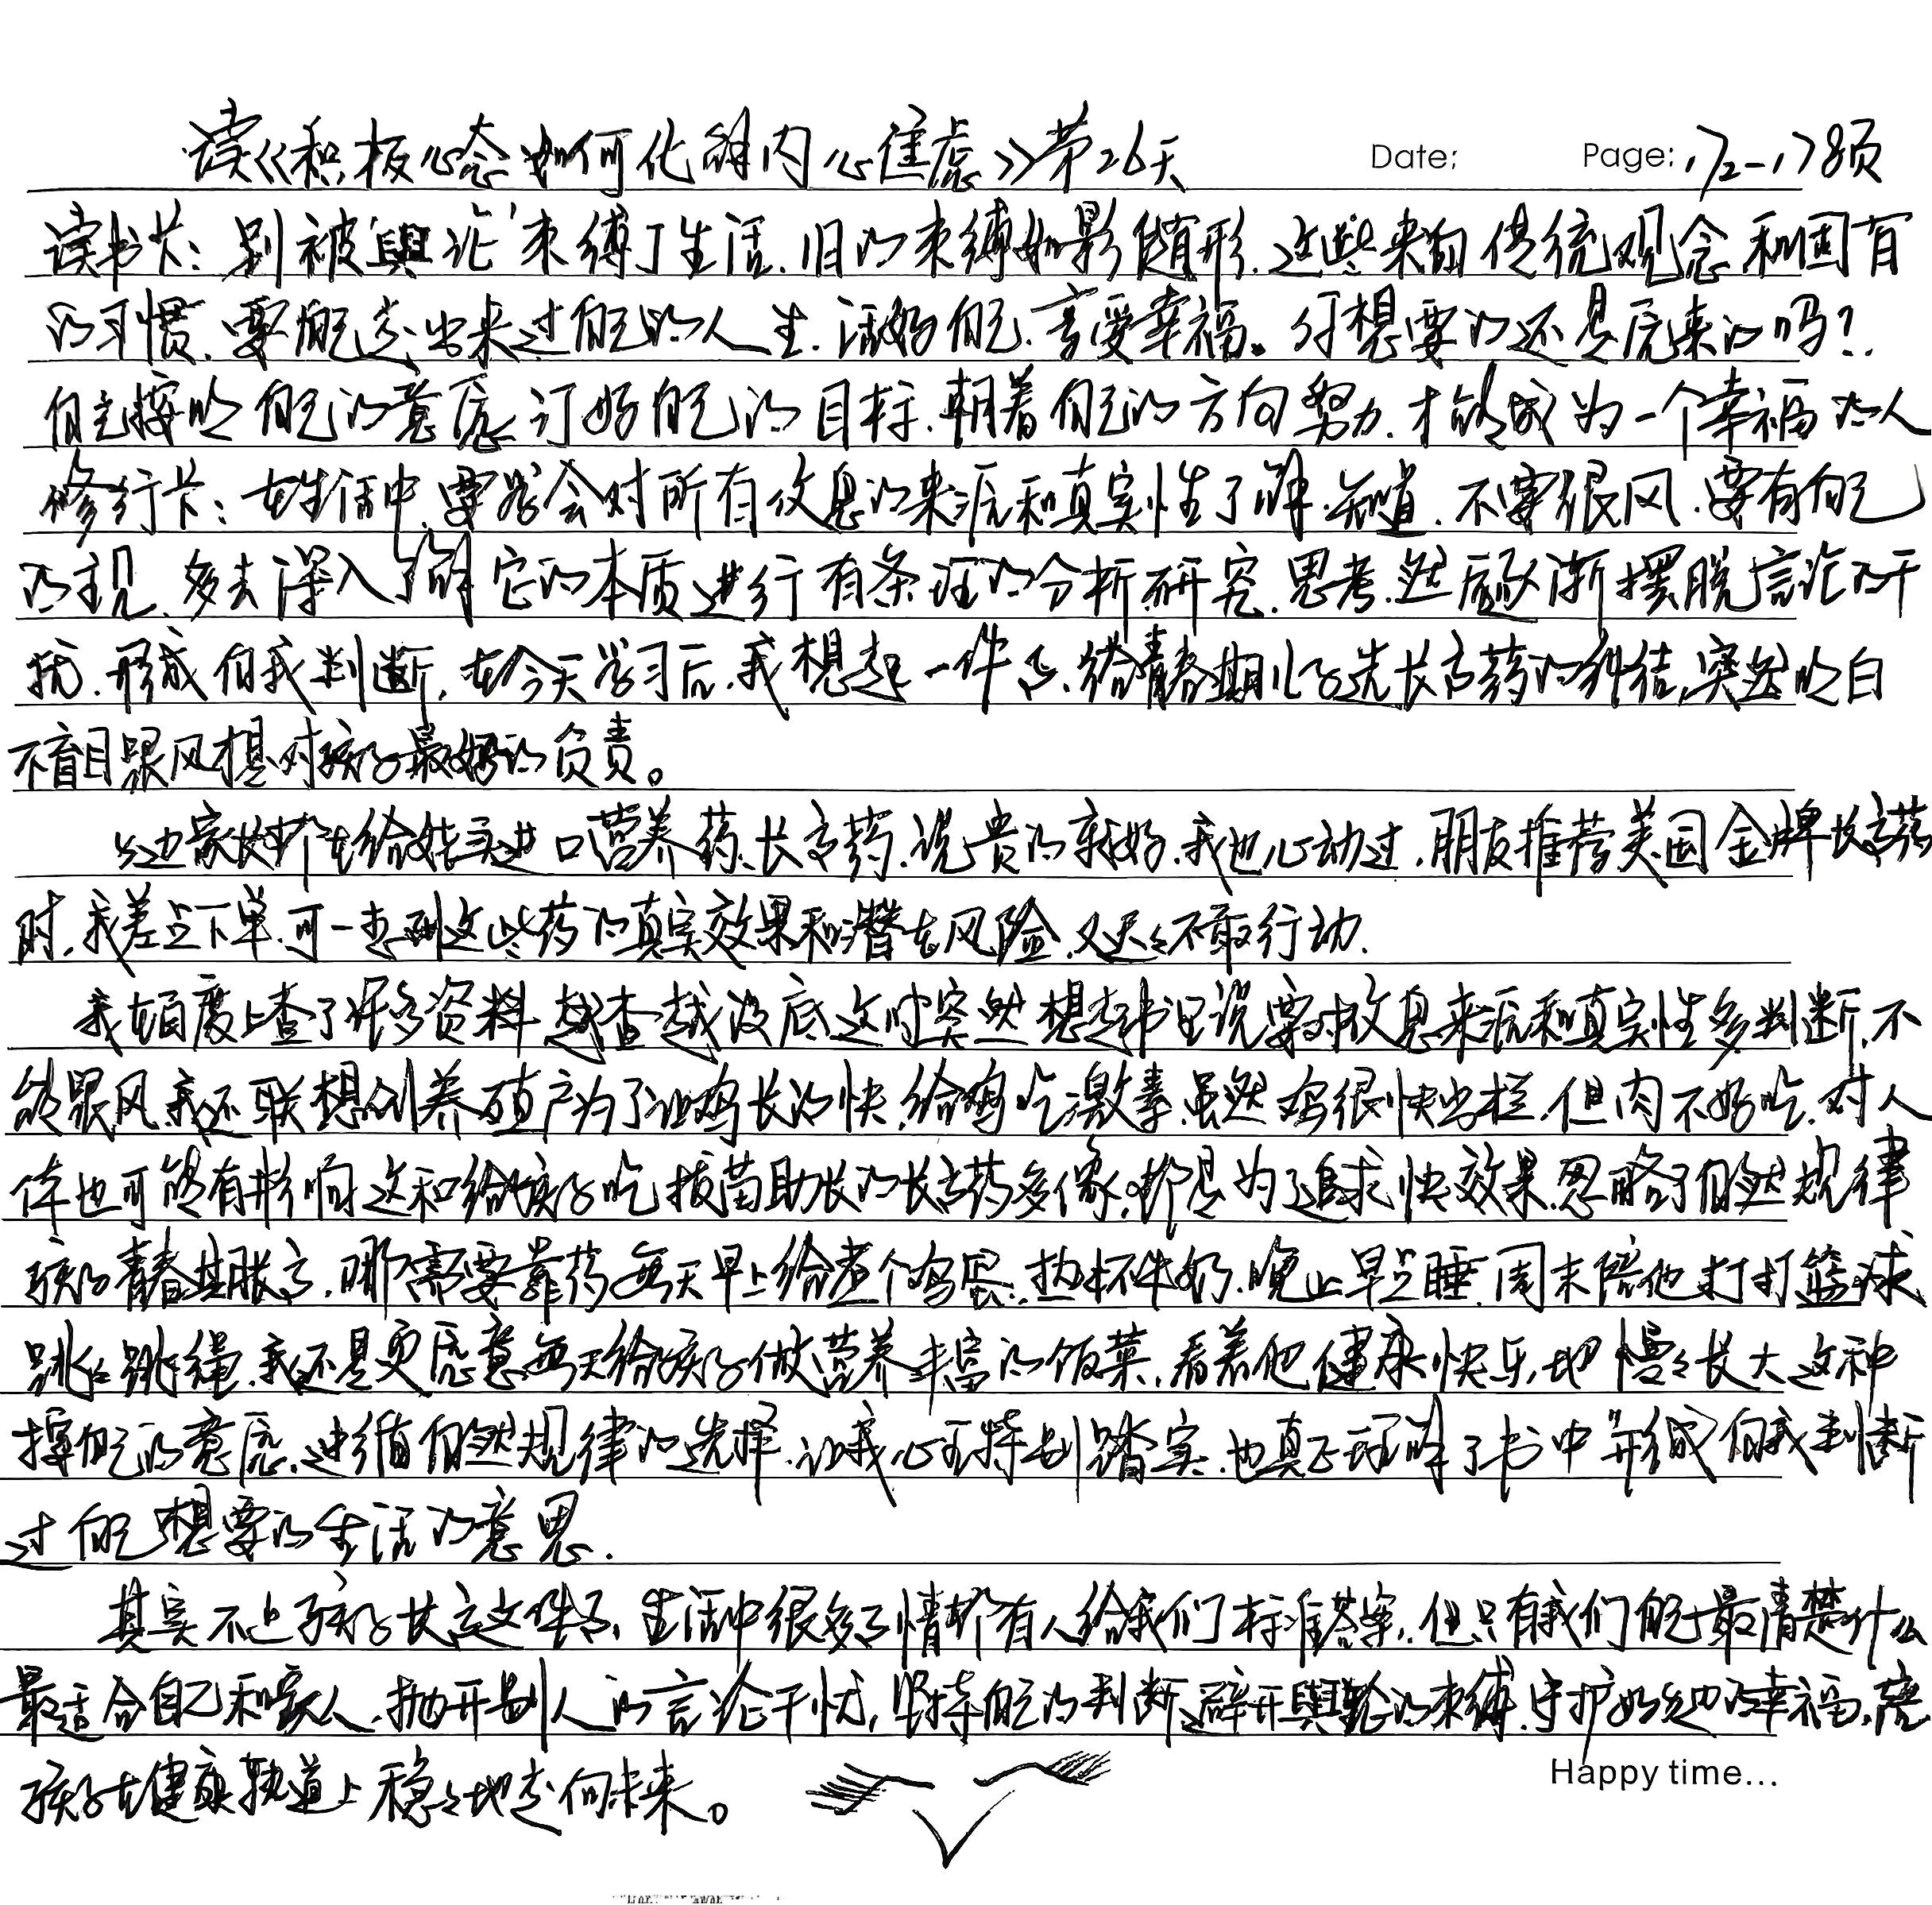 读《积极心态如何化解内心焦虑》第26天 Date: Page: 172-178页
读书卡：别被“舆论”束缚了生活.旧的束缚如影随形.这些来自传统观念和固有
的习惯.要自己走出来过自己的人生.活好自己.享受幸福。你想要的还是原来的吗？
自己按照自己的意愿订好自己的目标.朝着自己的方向努力.才能成为一个幸福的人
修行卡：在生活中.要学会对所有信息的来源和真实性了解.知道.不要跟风.要有自己
的主见.多去深入了解它的本质进行有条理的分析研究.思考.然后逐渐摆脱言论的干
扰.形成自我判断.在今天学习后.我想起一件事.给青春期儿子选长高药的纠结,突然明白
不盲目跟风才是对孩子最好的负责。
身边家长都在给娃买进口营养药、长高药.说贵的就好.我也心动过.朋友推荐美国金牌长高药
时.我差点下单.可一想到这些药的真实效果和潜在风险.又迟迟不敢行动.
我在百度上查了很多资料越查越没底这时突然想起书里说要对信息来源和真实性多判断,不
能跟风.我还联想到养殖户为了让鸡长的快,给鸡吃激素.虽然鸡很快出栏.但肉不好吃.对人
体也可能有影响这和给孩子吃拔苗助长的长高药多像,都是为了追求快效果.忽略了自然规律
孩子青春期长高,哪需要靠药每天早上给煮个鸡蛋.热杯牛奶.晚上早点睡.周末陪他打打篮球
跳跳绳.我还是更愿意每天给孩子做营养丰富的饭菜,看着他健康快乐地慢慢长大这种
按自己的意愿.遵循自然规律的选择.让我心里特别踏实.也真正理解了书中“形成自我判断
过自己想要的生活的意思.
其实不止孩子长高这件事、生活中很多事情都有人给我们标准答案,但只有我们自己最清楚什么
最适合自己和家人.抛开别人的言论干扰,坚持自己的判断避开舆论的束缚.守护好身边的幸福,陪
孩子在健康轨道上稳稳地走向未来。
Happy time...